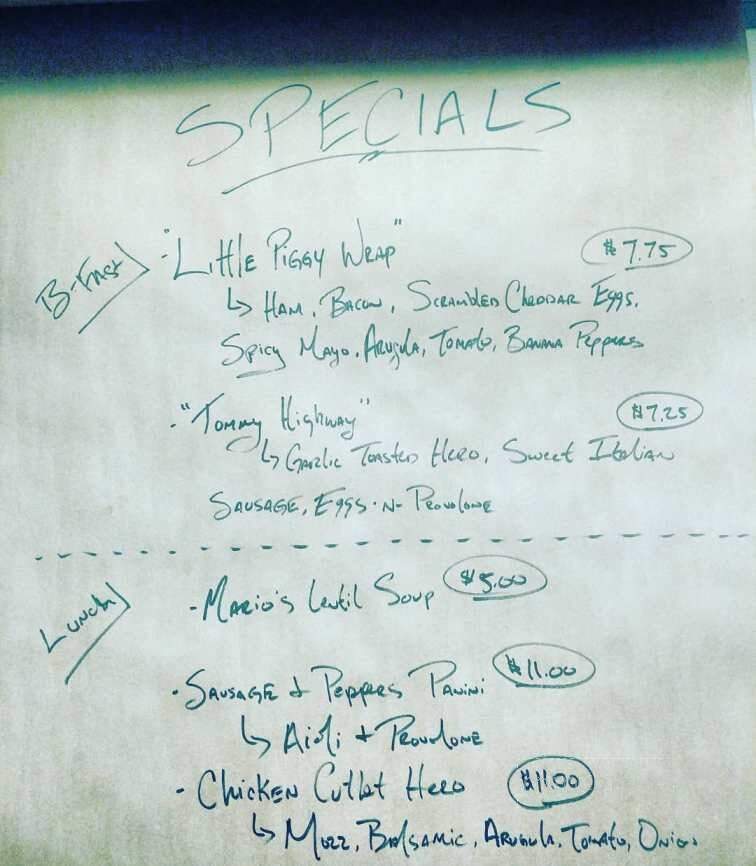 SPECIALS
B-Fast
- "Little Piggy Wrap" $7.75
↳ Ham, Bacon, Scrambled Cheddar Eggs,
Spicy Mayo, Arugula, Tomato, Banana Peppers
- "Tommy Highway" $7.25
↳ Garlic Toasted Hero, Sweet Italian
Sausage, Eggs-N-Provolone
Lunch
- Mario's Lentil Soup $5.00
- Sausage & Peppers Panini $11.00
↳ Aioli + Provolone
- Chicken Cutlet Hero $11.00
↳ Mozz, Balsamic, Arugula, Tomato, Onion